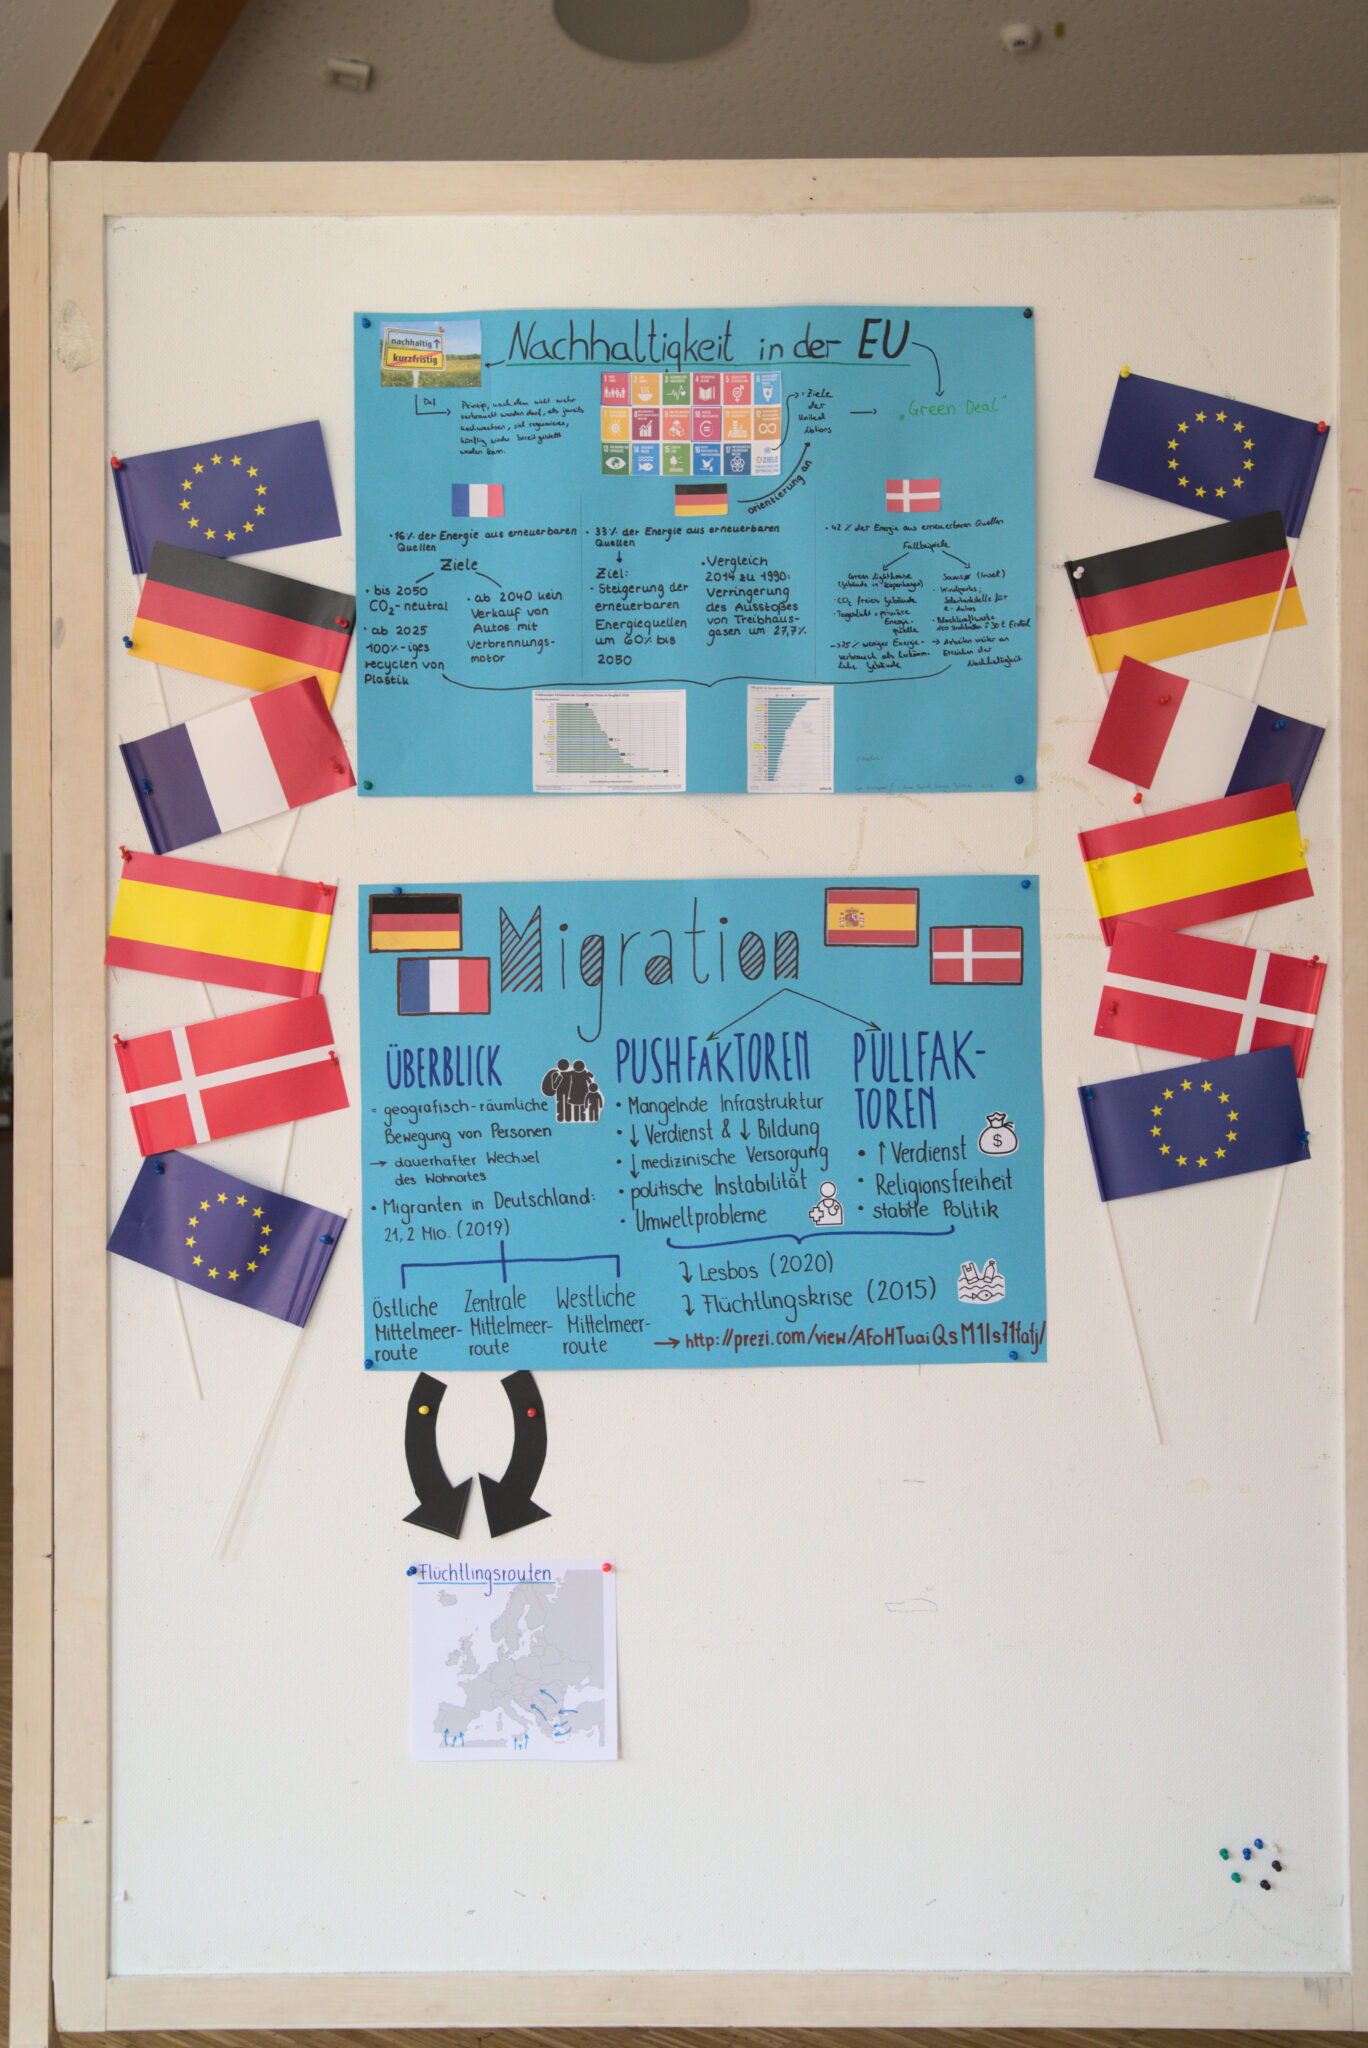 Nachhaltigkeit in der EU
nachhaltig ↑
kurzfristig
Def
Prinzip, nach dem nicht mehr
verbraucht werden darf, als jeweils
nachwachsen, sich regenerieren,
künftig wieder bereitgestellt
werden kann.
• Ziele
der
United
Nations
„Green Deal"
orientierung an
• 16% der Energie aus erneuerbaren
Quellen
Ziele
• bis 2050
CO₂-neutral
• ab 2025
100%-iges
recyclen von
Plastik
• ab 2040 kein
Verkauf von
Autos mit
Verbrennungs-
motor
• 33% der Energie aus erneuerbaren
Quellen
Ziel:
• Steigerung der
erneuerbaren
Energiequellen
um 60% bis
2050
• Vergleich
2014 zu 1990:
Verringerung
des Ausstoßes
von Treibhaus-
gasen um 27,7%
• 42% der Energie aus erneuerbaren Quellen
Fallbeispiele
Green Lighthouse
(Gebäude in Kopenhagen)
• CO₂ freies Gebäude
• Tageslicht = primäre
Energie-
quelle
→ 75% weniger Energie-
verbrauch als herkömm-
liche Gebäude
Samsø (Insel)
• Windparks,
e-Autos
→ Arbeiten weiter an
Erreichen der
Nachhaltigkeit
Migration
ÜBERBLICK
= geografisch-räumliche
Bewegung von Personen
→ dauerhafter Wechsel
des Wohnortes
• Migranten in Deutschland:
21,2 Mio. (2019)
Östliche
Mittelmeer-
route
Zentrale
Mittelmeer-
route
Westliche
Mittelmeer-
route
PUSHFAKTOREN
• Mangelnde Infrastruktur
• ↓ Verdienst & ↓ Bildung
• ↓ medizinische Versorgung
• politische Instabilität
• Umweltprobleme
PULLFAK-
TOREN
• ↑ Verdienst
• Religionsfreiheit
• stabile Politik
$
↴ Lesbos (2020)
↴ Flüchtlingskrise (2015)
→ http://prezi.com/view/AFoHTuaiQsM1Is71fafj/
Flüchtlingsrouten